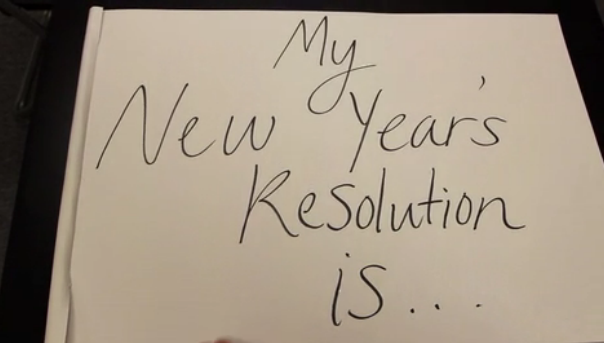 My
New Year's
Resolution
is...